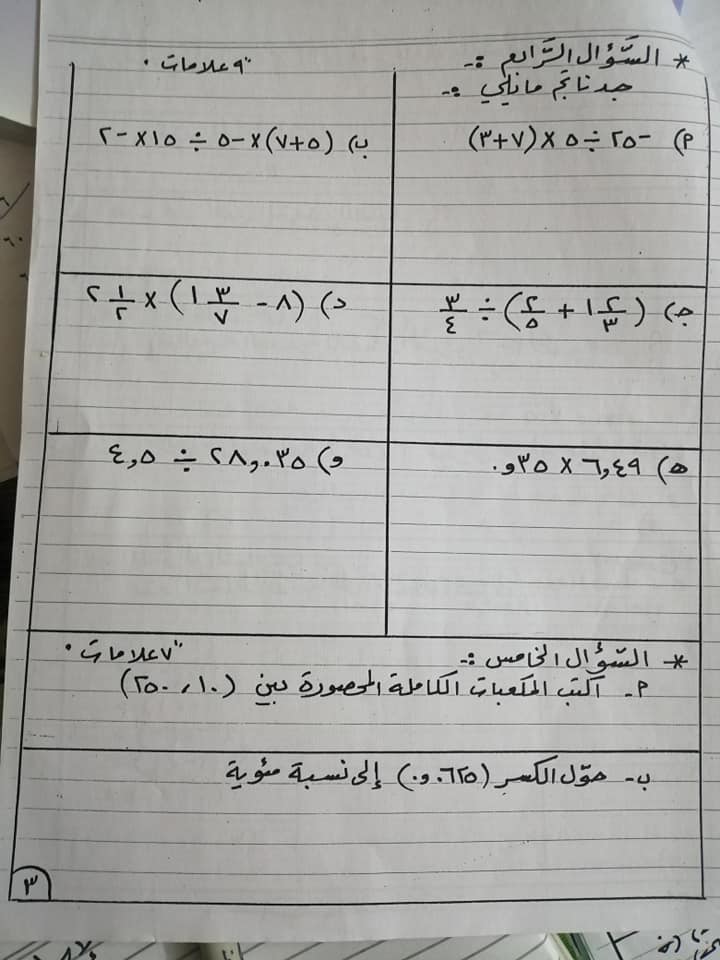 * السَّؤال الرَّابع :- "٩ علامات ."
جد ناتج ما يلي :-
أ) -٢٥ ÷ ٥ × (٧+٣)
ب) (٥+٧)×-٥ ÷ ١٥×-٢
ج) (١ ٢/٣ + ٢/٥) ÷ ٣/٤
د) (٨ - ١ ٣/٧) × ٢ ١/٢
ه) ٦,٤٩ × ٣٥و.
و) ٢٨,٠٣٥ ÷ ٤,٥
* السَّؤال الخامس :- "٧ علامات .
أ- اكتب المكعبات الكاملة المحصورة بين (١٠ ، ٢٥٠)
ب- حوّل الكسر (٦٢٥.و.) إلى نسبة مئوية
٣